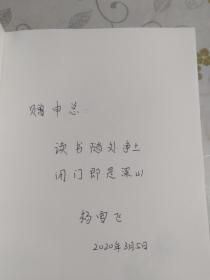 赠申总：
读书随处净土
闭门即是深山
杨雪飞
2020年3月5日